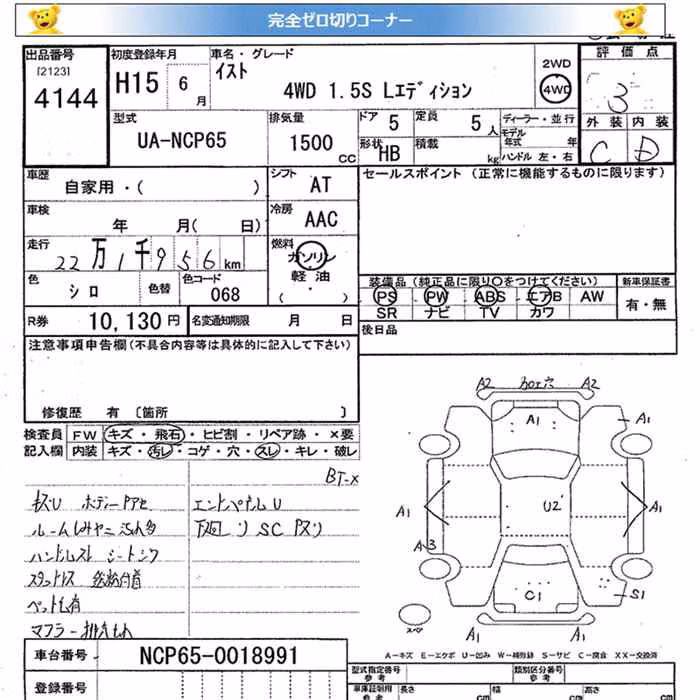 完全ゼロ切りコーナー
出品番号
[2123]
4144
初度登録年月
H15 6月
車名・グレード
イスト
4WD 1.5S Lエディション
2WD
4WD
評価点
3
外装 内装
C D
型式
UA-NCP65
排気量
1500
CC
ドア 5
定員 5人
形状 HB
積載 kg
ディーラー・並行
モデル年式 年
ハンドル 左・右
車歴
自家用・( )
シフト AT
車検
年 月( 日)
冷房 AAC
走行
22万1千956km
燃料
ガソリン
軽油
( )
色
シロ
色替
色コード
068
R券 10,130円
名変通知期限 月 日
セールスポイント(正常に機能するものに限ります)
装備品(純正品に限り○をつけてください)
新車保証書
PS PW ABS エアB AW
SR ナビ TV カワ
有・無
後日品
注意事項申告欄(不具合内容等は具体的に記入して下さい)
修復歴 有 〔箇所 〕
検査員 FW キズ・飛石・ヒビ割・リペア跡・×要
記入欄 内装 キズ・汚レ・コゲ・穴・スレ・キレ・破レ
BT-X
キズU ボディー
エンドパネルU
ルーム
下廻り SC
ハンドルスレ シート
スタットレス
ペット
マフラー
A2 A2
A1 A1
A1 U2 A1
A3
C1 S1
スペア
A1 A1
A-キズ E-エクボ U-凹み W-補修跡 S-サビ C-腐食 XX-交換済
車台番号 NCP65-0018991
登録番号
型式指定番号
参考
類別区分番号
参考
車庫証明用
参考
長さ cm 幅 cm 高さ cm